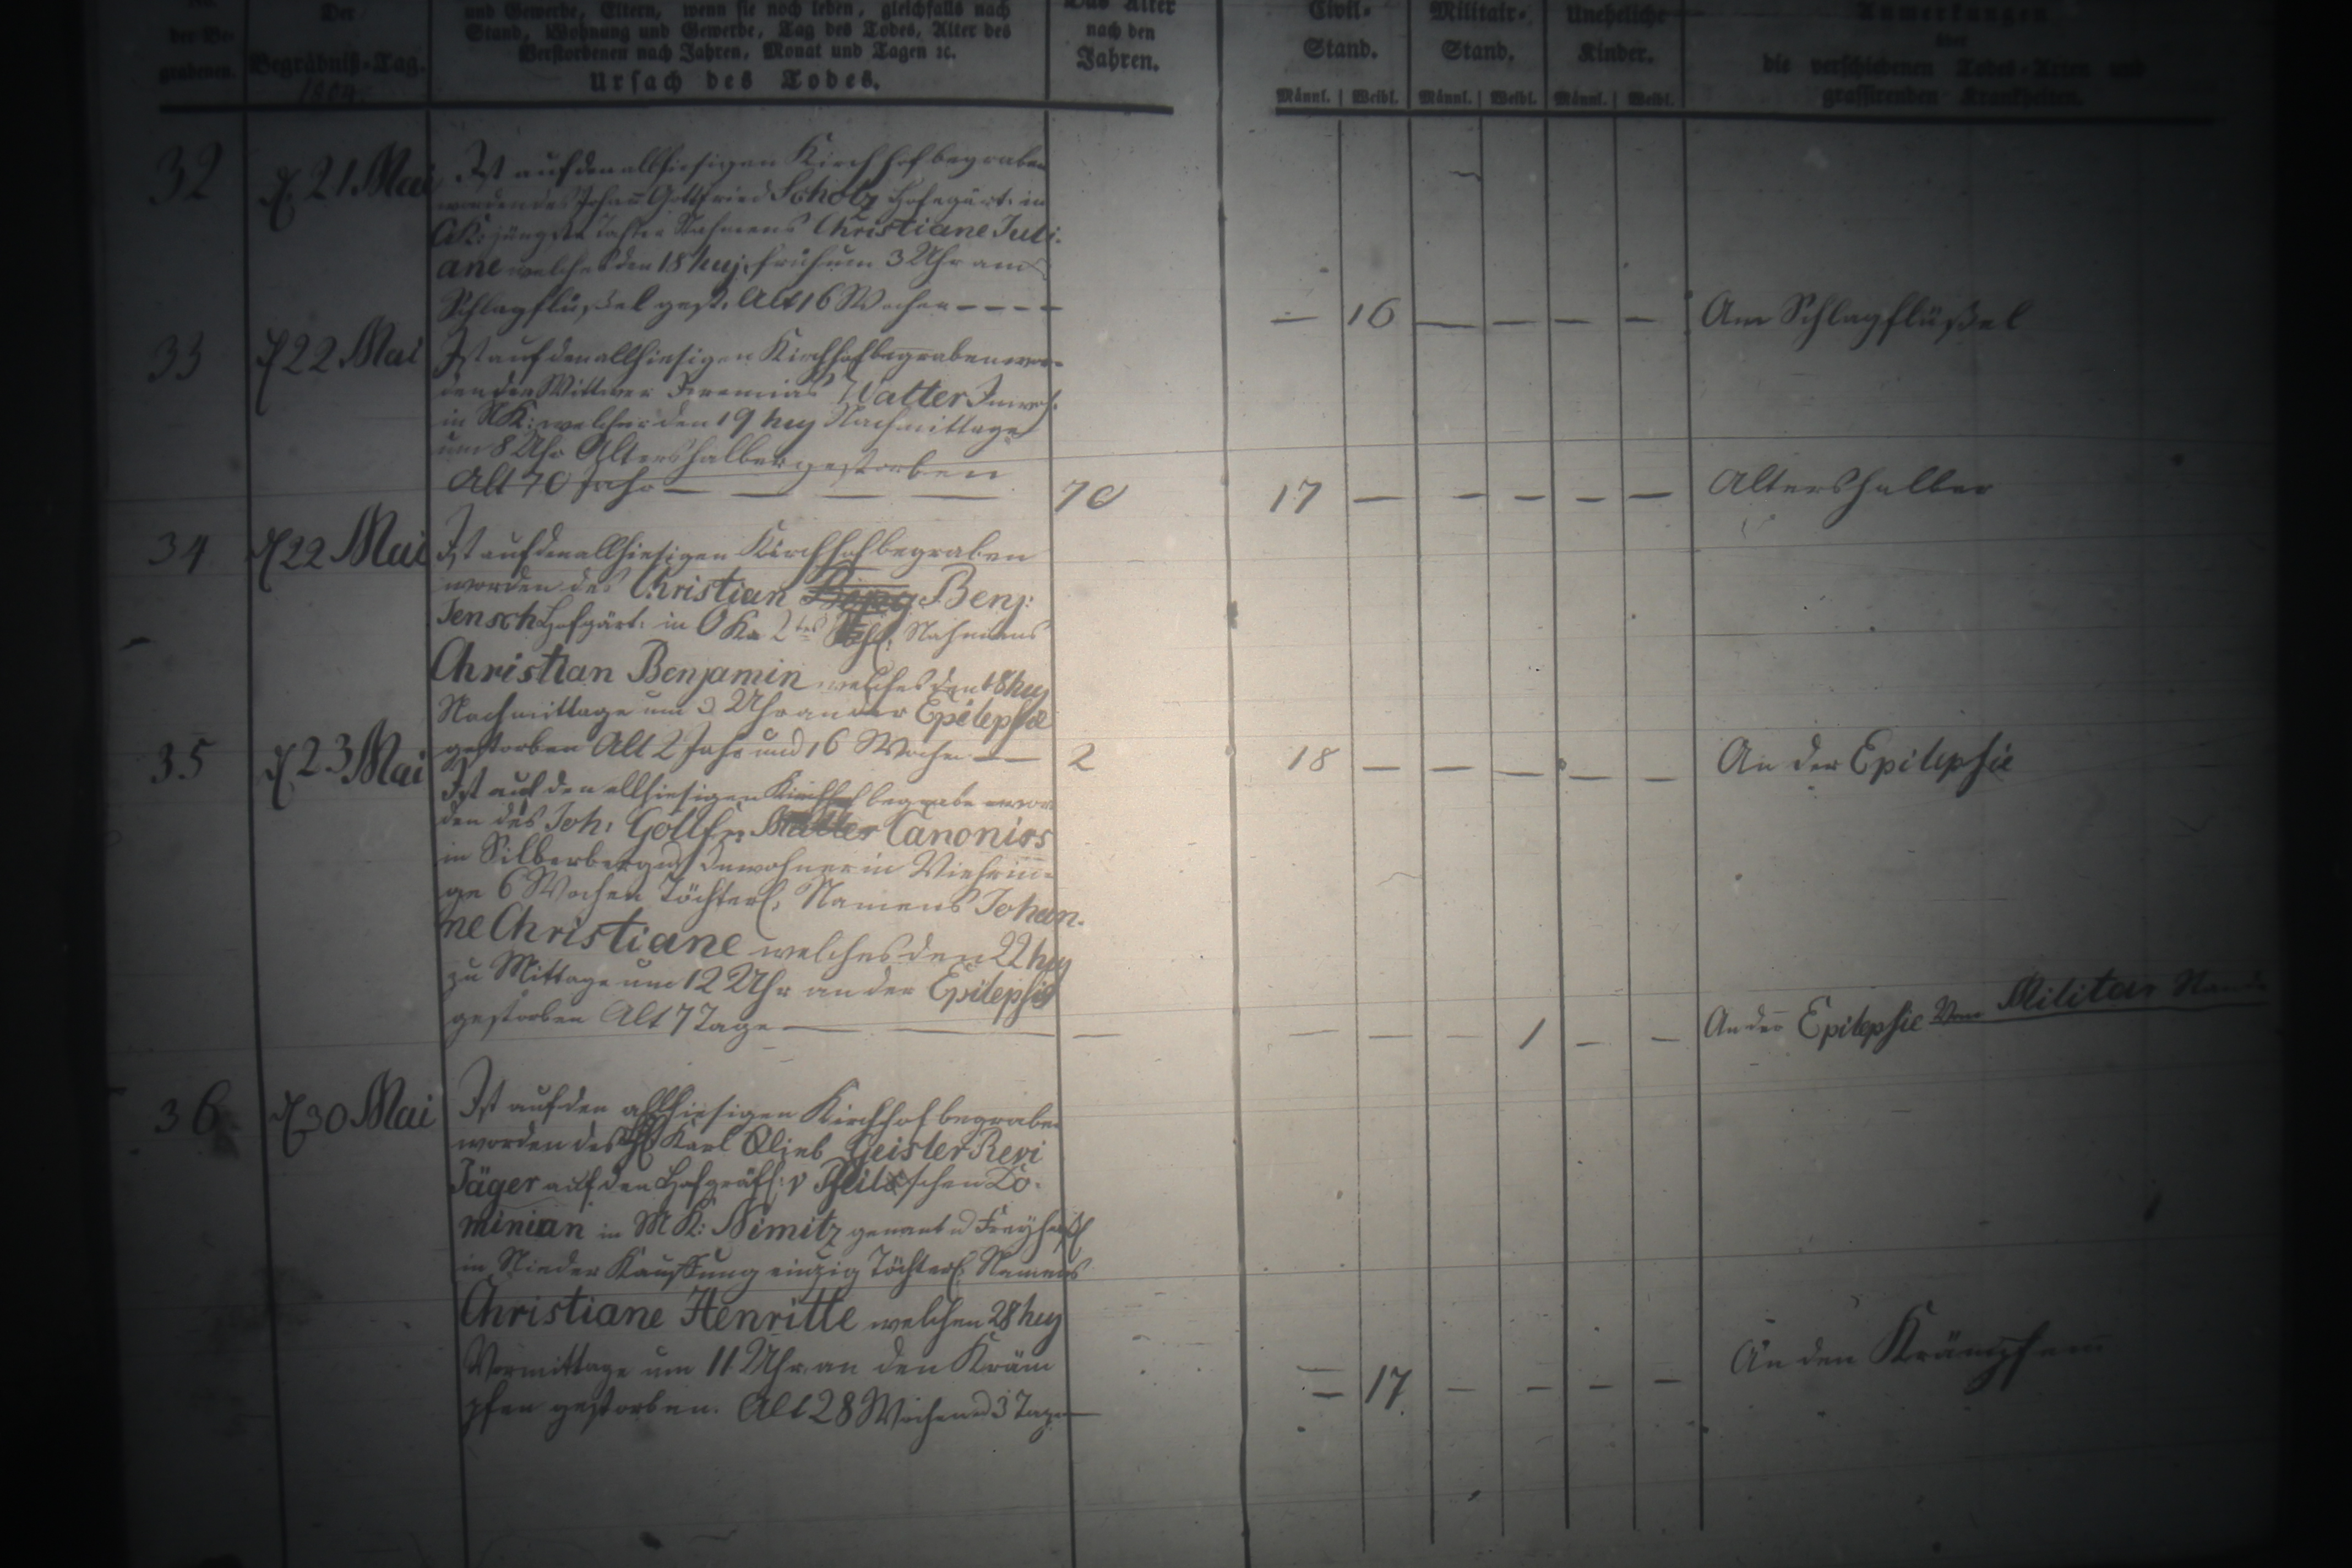 No.
der Be-
grabenen.
Der
Begräbniß-Tag.
1809.
und Gewerbe, Eltern, wenn sie noch leben, gleichfalls nach
Stand, Wohnung und Gewerbe, Tag des Todes, Alter des
Verstorbenen nach Jahren, Monat und Tagen ꝛc.
Ursach des Todes.
Das Alter
nach den
Jahren.
Civil-
Stand.
Männl. | Weibl.
Militair-
Stand.
Männl. | Weibl.
Uneheliche
Kinder.
Männl. | Weibl.
Anmerkungen
über
die verschiedenen Todes-Arten und
grassirenden Krankheiten.
32 d. 21 Mai Ist auf den allhiesigen Kirchhof begraben
worden des Johañ Gottfried Scholz Hofegärt: in
jüngste Nahmens Christiane Juli-
ane welche den 18 huj: früh um 3 Uhr am
Schlagflüßel gest. Alt 16 Wochen — — — —
— 16 — — — — Am Schlagflüßel
33 d 22 Mai Ist auf den allhiesigen Kirchhof begraben wor-
den der Wittwer Jeremias Walter Inwoh:
in NK: welcher den 19 huj Nachmittage
um 8 Uhr Altershalber gestorben
Alt 70 Jahr — — — — 70 17 — — — — — Altershalber
34 d 22 Mai Ist auf den allhiesigen Kirchhof begraben
worden des Christian Benj:
Jensch Hofgärt: in OK. 2tes Nahmens
Christian Benjamin welches den 18 huj
Nachmittage um 3 Uhr an der Epilepsie
gestorben Alt 2 Jahr und 16 Wochen — — 2 18 — — — — — An der Epilepsie
35 d 23 Mai Ist auf den allhiesigen Kirchhof begraben wor
den des Joh: Gottfr: Müller Canonirs
in Silberberg und Inwohner in Viehrin-
ge 6 Wochen Töchterl: Namens Johan-
ne Christiane welches den 22 huj
zu Mittage um 12 Uhr an der Epilepsie
gestorben Alt 7 Tage — — — — — — 1 — — An der Epilepsie Vom Militär Stande
36 d 30 Mai Ist auf den allhiesigen Kirchhof begraben
worden des Karl Geisler Revi
Jäger auf den Hofgräfl: v schen Do-
minian in MK: Nimitz genant u Freyhäusl
in Nieder Kauffung einzig Töchterl: Namens
Christiane Henritte welchen 28 huj
Vormittage um 11 Uhr an den Kräm
pfen gestorben. Alt 28 Wochen u 3 Tage —
— 17 — — — — An den Krämpfen